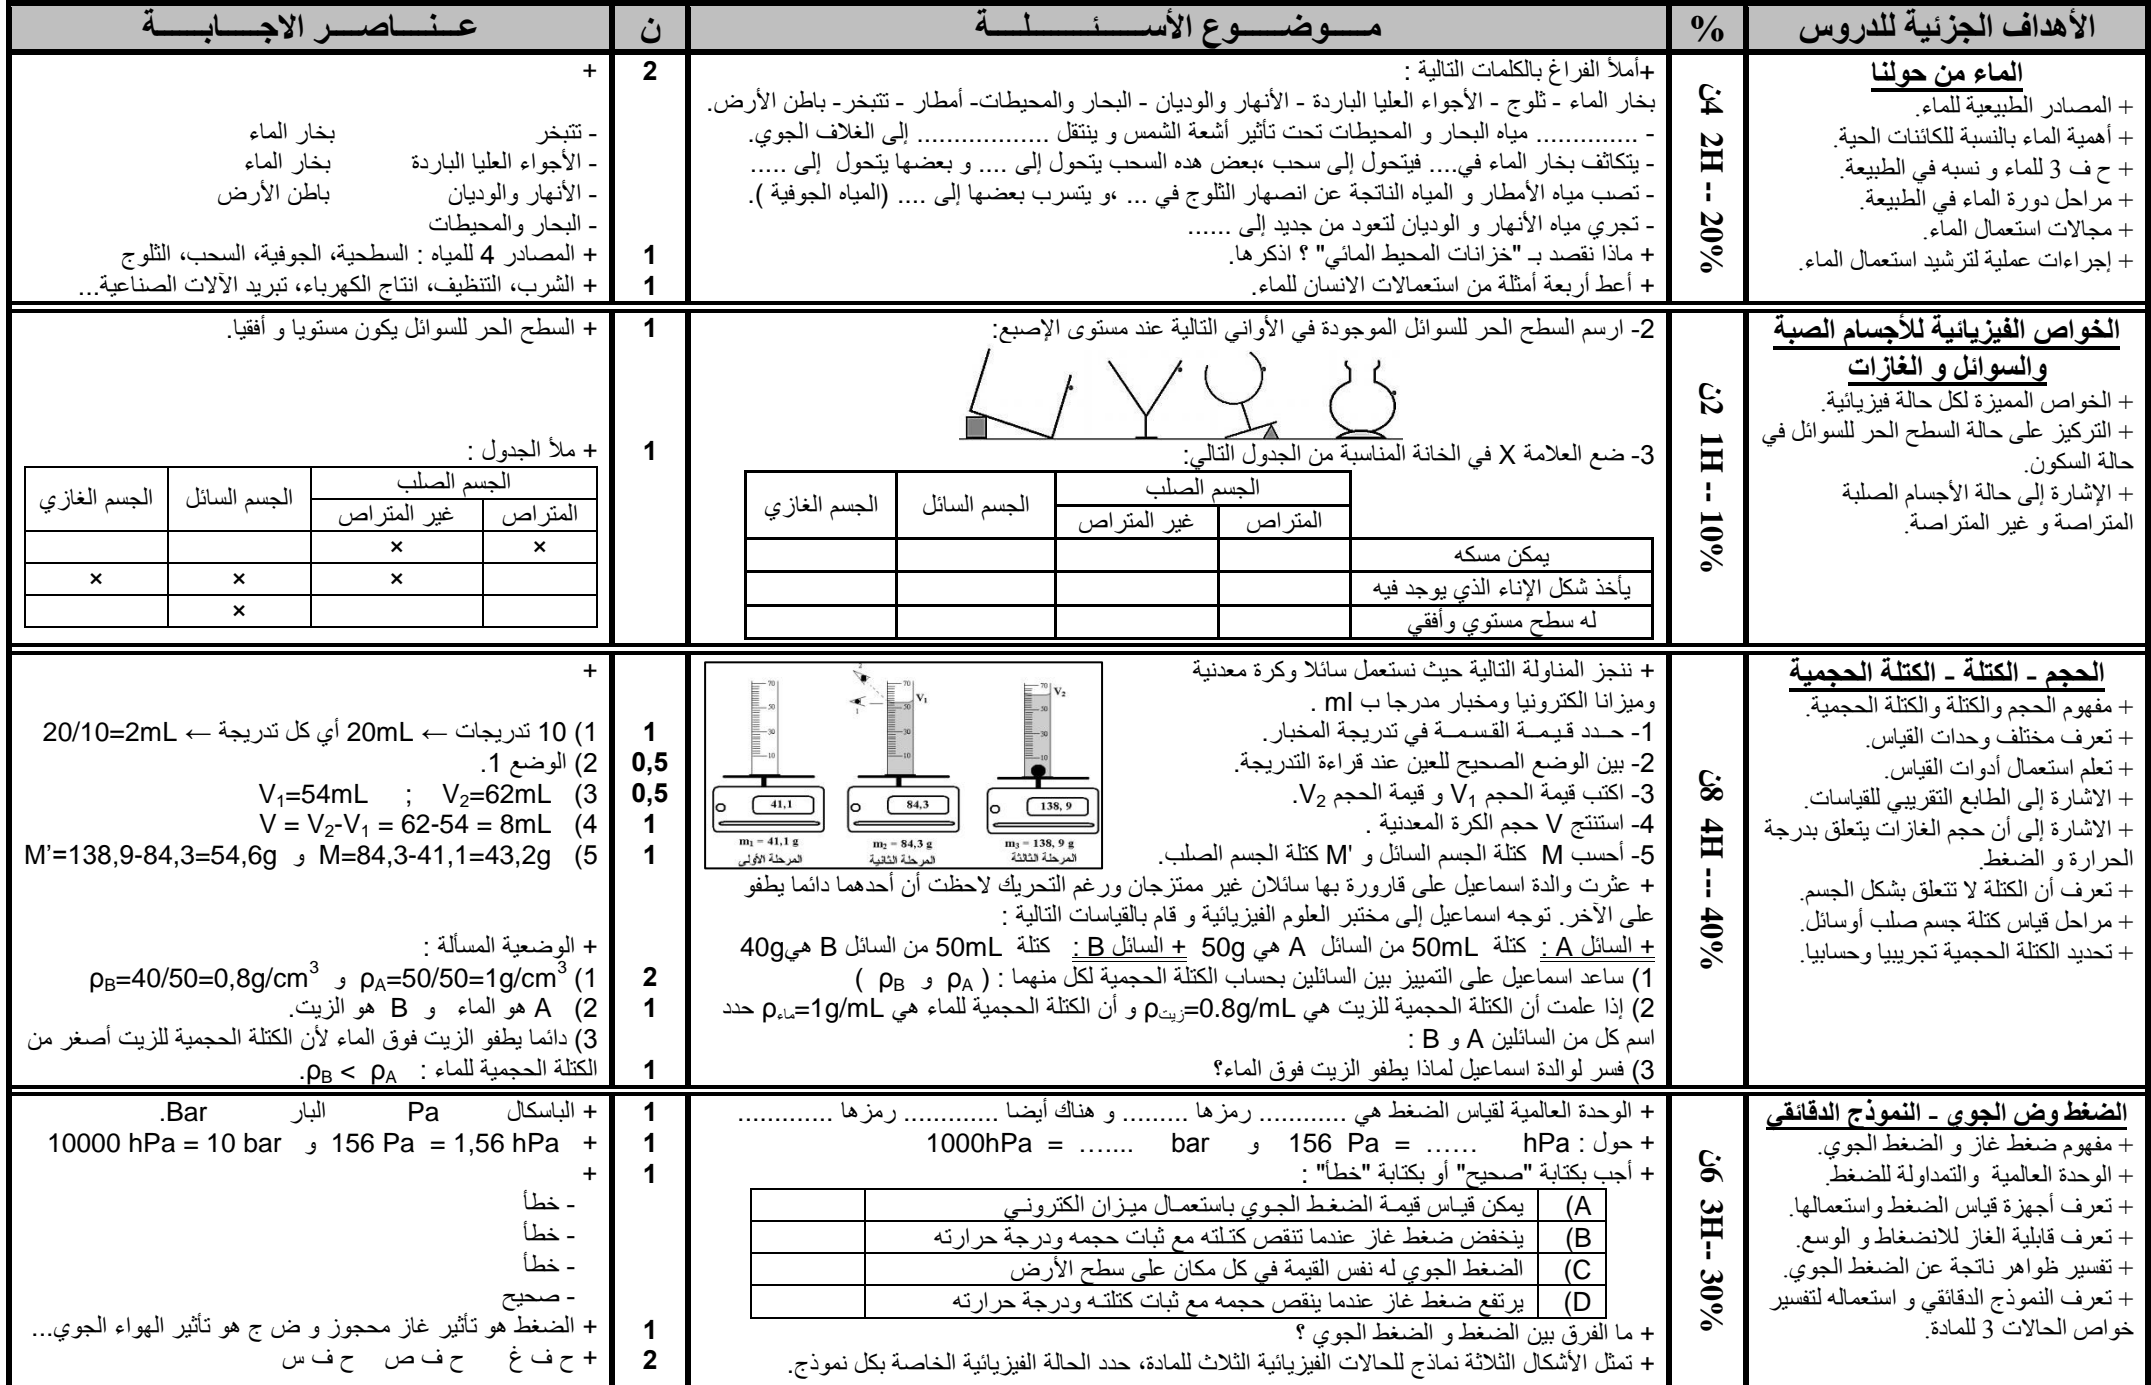 الأهداف الجزئية للدروس
%
مـــوضـــوع الأســـئـــلـــة
ن
عـنـــاصـــر الاجـــابـــة
الماء من حولنا
+ المصادر الطبيعية للماء.
+ أهمية الماء بالنسبة للكائنات الحية.
+ ح ف 3 للماء و نسبه في الطبيعة.
+ مراحل دورة الماء في الطبيعة.
+ مجالات استعمال الماء.
+ إجراءات عملية لترشيد استعمال الماء.
4ن 2H -- 20%
+أملأ الفراغ بالكلمات التالية :
بخار الماء - ثلوج - الأجواء العليا الباردة - الأنهار والوديان - البحار والمحيطات- أمطار - تتبخر- باطن الأرض.
- .............. مياه البحار و المحيطات تحت تأثير أشعة الشمس و ينتقل .................. إلى الغلاف الجوي.
- يتكاثف بخار الماء في.... فيتحول إلى سحب ،بعض هده السحب يتحول إلى .... و بعضها يتحول إلى .....
- تصب مياه الأمطار و المياه الناتجة عن انصهار الثلوج في ... ،و يتسرب بعضها إلى .... (المياه الجوفية ).
- تجري مياه الأنهار و الوديان لتعود من جديد إلى ......
+ ماذا نقصد بـ "خزانات المحيط المائي" ؟ اذكرها.
+ أعط أربعة أمثلة من استعمالات الانسان للماء.
2
1
1
+
- تتبخر بخار الماء
- الأجواء العليا الباردة بخار الماء
- الأنهار والوديان باطن الأرض
- البحار والمحيطات
+ المصادر 4 للمياه : السطحية، الجوفية، السحب، الثلوج
+ الشرب، التنظيف، انتاج الكهرباء، تبريد الآلات الصناعية...
الخواص الفيزيائية للأجسام الصبة
والسوائل و الغازات
+ الخواص المميزة لكل حالة فيزيائية.
+ التركيز على حالة السطح الحر للسوائل في
حالة السكون.
+ الإشارة إلى حالة الأجسام الصلبة
المتراصة و غير المتراصة.
2ن 1H -- 10%
2- ارسم السطح الحر للسوائل الموجودة في الأواني التالية عند مستوى الإصبع:
3- ضع العلامة X في الخانة المناسبة من الجدول التالي:
الجسم الصلب الجسم السائل الجسم الغازي
المتراص غير المتراص
يمكن مسكه
يأخذ شكل الإناء الذي يوجد فيه
له سطح مستوي وأفقي
1
1
+ السطح الحر للسوائل يكون مستويا و أفقيا.
+ ملأ الجدول :
الجسم الصلب الجسم السائل الجسم الغازي
المتراص غير المتراص
× ×
× × ×
×
الحجم - الكتلة - الكتلة الحجمية
+ مفهوم الحجم والكتلة والكتلة الحجمية.
+ تعرف مختلف وحدات القياس.
+ تعلم استعمال أدوات القياس.
+ الاشارة إلى الطابع التقريبي للقياسات.
+ الاشارة إلى أن حجم الغازات يتعلق بدرجة
الحرارة و الضغط.
+ تعرف أن الكتلة لا تتعلق بشكل الجسم.
+ مراحل قياس كتلة جسم صلب أوسائل.
+ تحديد الكتلة الحجمية تجريبيا وحسابيا.
8ن 4H --- 40%
+ ننجز المناولة التالية حيث نستعمل سائلا وكرة معدنية
وميزانا الكترونيا ومخبار مدرجا ب ml .
1- حـــدد قـيـمــة القـسـمــة في تدريجة المخبار.
2- بين الوضع الصحيح للعين عند قراءة التدريجة.
3- اكتب قيمة الحجم V₁ و قيمة الحجم V₂.
4- استنتج V حجم الكرة المعدنية .
5- أحسب M كتلة الجسم السائل و M' كتلة الجسم الصلب.
70 50 30 10
70 50 30 10 V₁ 1 2
70 50 30 10 V₂
41,1 84,3 138, 9
m₁ = 41,1 g m₂ = 84,3 g m₃ = 138, 9 g
المرحلة الأولى المرحلة الثانية المرحلة الثالثة
+ عثرت والدة اسماعيل على قارورة بها سائلان غير ممتزجان ورغم التحريك لاحظت أن أحدهما دائما يطفو
على الآخر. توجه اسماعيل إلى مختبر العلوم الفيزيائية و قام بالقياسات التالية :
+ السائل A : كتلة 50mL من السائل A هي 50g + السائل B : كتلة 50mL من السائل B هي40g
1) ساعد اسماعيل على التمييز بين السائلين بحساب الكتلة الحجمية لكل منهما : ( ρA و ρB )
2) إذا علمت أن الكتلة الحجمية للزيت هي ρزيت=0.8g/mL و أن الكتلة الحجمية للماء هي ρماء=1g/mL حدد
اسم كل من السائلين A و B :
3) فسر لوالدة اسماعيل لماذا يطفو الزيت فوق الماء؟
1
0,5
0,5
1
1
2
1
1
+
1) 10 تدريجات ← 20mL أي كل تدريجة ← 20/10=2mL
2) الوضع 1.
3) V₁=54mL ; V₂=62mL
4) V = V₂-V₁ = 62-54 = 8mL
5) M=84,3-41,1=43,2g و M'=138,9-84,3=54,6g
+ الوضعية المسألة :
1) ρA=50/50=1g/cm³ و ρB=40/50=0,8g/cm³
2) A هو الماء و B هو الزيت.
3) دائما يطفو الزيت فوق الماء لأن الكتلة الحجمية للزيت أصغر من
الكتلة الحجمية للماء : ρB < ρA.
الضغط وض الجوي - النموذج الدقائقي
+ مفهوم ضغط غاز و الضغط الجوي.
+ الوحدة العالمية والتمداولة للضغط.
+ تعرف أجهزة قياس الضغط واستعمالها.
+ تعرف قابلية الغاز للانضغاط و الوسع.
+ تفسير ظواهر ناتجة عن الضغط الجوي.
+ تعرف النموذج الدقائقي و استعماله لتفسير
خواص الحالات 3 للمادة.
6ن 3H-- 30%
+ الوحدة العالمية لقياس الضغط هي ........... رمزها ......... و هناك أيضا ............ رمزها ............
+ حول : 156 Pa = …… hPa و 1000hPa = ….... bar
+ أجب بكتابة "صحيح" أو بكتابة "خطأ" :
A) يمكن قيـاس قيمـة الضغـط الجـوي باستعمـال ميـزان الكترونـي
B) ينخفض ضغط غاز عندما تنقص كتـلته مع ثبات حجمه ودرجة حرارته
C) الضغط الجوي له نفس القيمة في كل مكان على سطح الأرض
D) يرتفع ضغط غاز عندما ينقص حجمه مع ثبات كتلتـه ودرجة حرارته
+ ما الفرق بين الضغط و الضغط الجوي ؟
+ تمثل الأشكال الثلاثة نماذج للحالات الفيزيائية الثلاث للمادة، حدد الحالة الفيزيائية الخاصة بكل نموذج.
1
1
1
1
2
+ الباسكال Pa البار Bar.
+ 156 Pa = 1,56 hPa و 10000 hPa = 10 bar
+
- خطأ
- خطأ
- خطأ
- صحيح
+ الضغط هو تأثير غاز محجوز و ض ج هو تأثير الهواء الجوي...
+ ح ف غ ح ف ص ح ف س